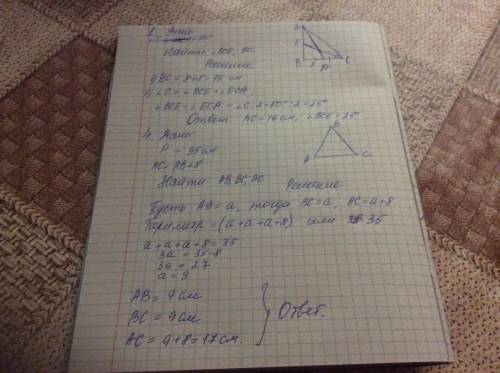 2. Дано:
Найти ∠BCE, BC.
Решение
1) BC = 8+8=16 см
2) ∠C = ∠BCE + ∠ECA,
∠BCE = ∠ECA = ∠C:2 = 50°:2 = 25°
Ответ: AC = 16 см, ∠BCE = 25°
A
E
B 8 F C
4. Дано:
P = 35 см
AC = AB+8
Найти AB, BC, AC
Решение
B
A C
Пусть AB = a, тогда BC = a, AC = a+8
Периметр = (a+a+a+8) или 35
a+a+a+8=35
3a = 35-8
3a = 27
a = 9
AB = 9 см
BC = 9 см
AC = 9+8 = 17 см.
Ответ.